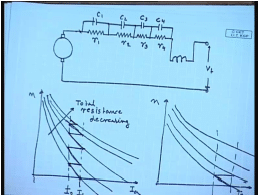 C₁ C₂ C₃ C₄
r₁ r₂ r₃ r₄
V_t
n
Total
resistance
decreasing
n